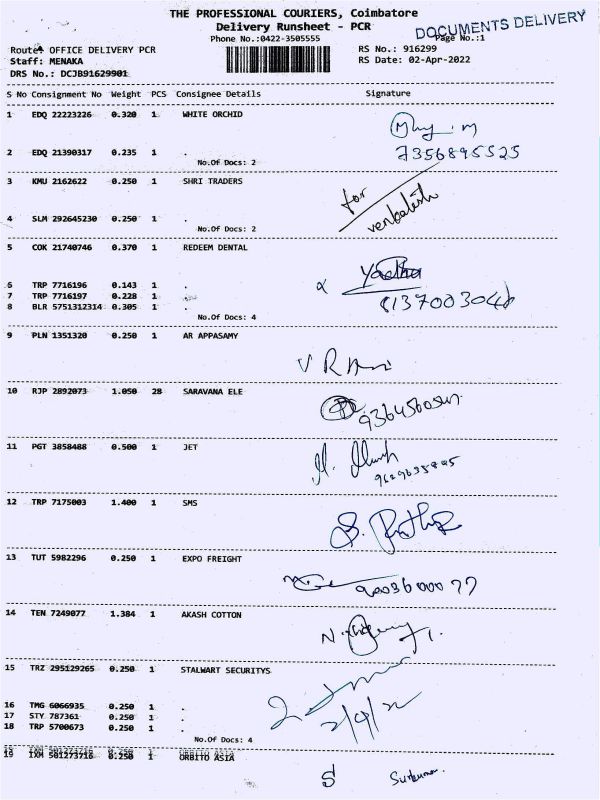 THE PROFESSIONAL COURIERS, Coimbatore
Delivery Runsheet - PCR
DOCUMENTS DELIVERY
Phone No.:0422-3505555
Page No.:1
Route: OFFICE DELIVERY PCR
RS No.: 916299
Staff: MENAKA
RS Date: 02-Apr-2022
DRS No.: DCJB91629901
S No Consignment No Weight PCS Consignee Details Signature
1 EDQ 22223226 0.320 1 WHITE ORCHID
2 EDQ 21390317 0.235 1 .
7356895525
No.Of Docs: 2
3 KMU 2162622 0.250 1 SHRI TRADERS
for
venkatesh
4 SLM 292645230 0.250 1 .
No.Of Docs: 2
5 COK 21740746 0.370 1 REDEEM DENTAL
6 TRP 7716196 0.143 1 .
7 TRP 7716197 0.228 1 .
8 BLR 5751312314 0.305 1 .
No.Of Docs: 4
9 PLN 1351320 0.250 1 AR APPASAMY
10 RJP 2892073 1.050 28 SARAVANA ELE
11 PGT 3858488 0.500 1 JET
12 TRP 7175003 1.400 1 SMS
13 TUT 5982296 0.250 1 EXPO FREIGHT
14 TEN 7249077 1.384 1 AKASH COTTON
15 TRZ 295129265 0.250 1 STALWART SECURITYS
16 TMG 6066935 0.250 1 .
17 STY 787361 0.250 1 .
18 TRP 5700673 0.250 1 .
2/4/22
No.Of Docs: 4
19 IXM 501273716 0.250 1 ORBITO ASIA